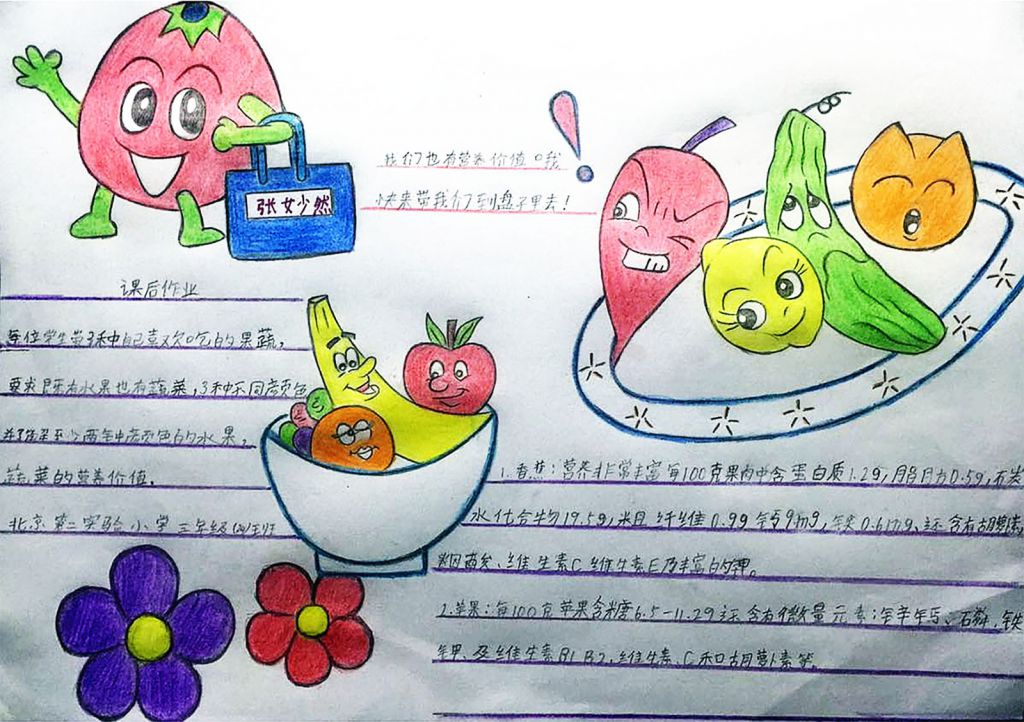 我们也有营养价值。我
快来带我们到盘子里去!
张女少然
课后作业
每位学生带3种自己喜欢吃的果蔬,
要求既有水果也有蔬菜,3种不同颜色
至少两种颜色的水果,
蔬菜的营养价值.
北京第二实验小学三年级(4)班
1.香蕉:营养非常丰富每100克果肉中含蛋白质1.2g,脂肪0.5g,石炭
水化合物19.5g,粗纤维0.9g钙9mg,铁0.6mg、还含有胡萝卜素
烟酸、维生素C维生素E及丰富的钾。
2.苹果:每100克苹果含糖6.5-11.2g还含有微量元素:锌钙、石粦,铁
钾、及维生素B1B2、维生素、C和胡萝卜素等。